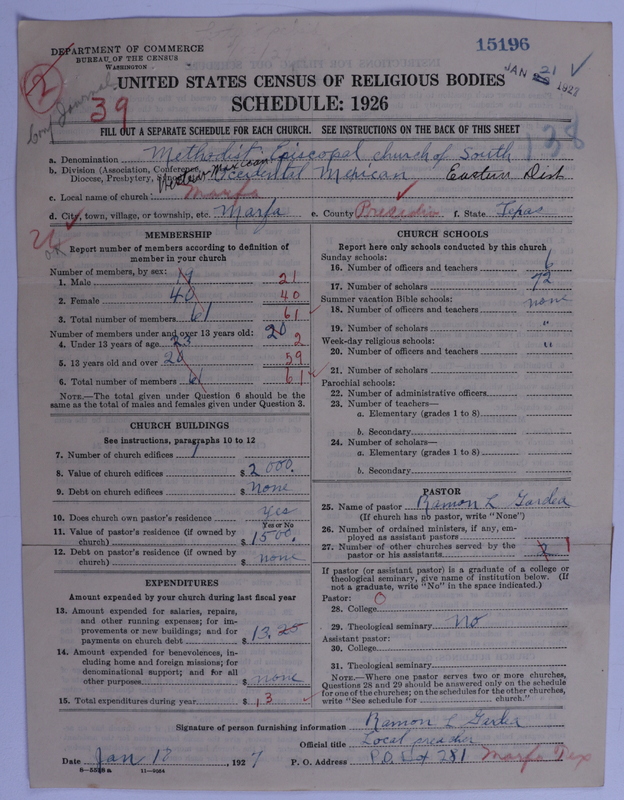 15196
JAN 21 1927
DEPARTMENT OF COMMERCE
BUREAU OF THE CENSUS
WASHINGTON
2
Conf Journal
39
UNITED STATES CENSUS OF RELIGIOUS BODIES
SCHEDULE: 1926
138
FILL OUT A SEPARATE SCHEDULE FOR EACH CHURCH. SEE INSTRUCTIONS ON THE BACK OF THIS SHEET
a. Denomination Methodist Episcopal church of South
b. Division (Association, Conference, Mexican Eastern Dist
Diocese, Presbytery,
c. Local name of church: Marfa
d. City, town, village, or township, etc. Marfa e. County Presidio f. State Texas
OK
MEMBERSHIP
Report number of members according to definition of member in your church
Number of members, by sex:
1. Male 21
2. Female 40 40
3. Total number of members 61 61
Number of members under and over 13 years old: 20
4. Under 13 years of age 23 2
5. 13 years old and over 20 59
6. Total number of members 61 61
NOTE.—The total given under Question 6 should be the same as the total of males and females given under Question 3.
CHURCH BUILDINGS
See instructions, paragraphs 10 to 12
7. Number of church edifices 1
8. Value of church edifices $ 2000.
9. Debt on church edifices $ None
10. Does church own pastor's residence Yes
Yes or No
11. Value of pastor's residence (if owned by church) $ 1500.
12. Debt on pastor's residence (if owned by church) $ none
EXPENDITURES
Amount expended by your church during last fiscal year
13. Amount expended for salaries, repairs, and other running expenses; for improvements or new buildings; and for payments on church debt $ 13.25
14. Amount expended for benevolences, including home and foreign missions; for denominational support; and for all other purposes $ none
15. Total expenditures during year $ 13
CHURCH SCHOOLS
Report here only schools conducted by this church
Sunday schools:
16. Number of officers and teachers 6
17. Number of scholars 72
Summer vacation Bible schools: none
18. Number of officers and teachers
19. Number of scholars "
Week-day religious schools:
20. Number of officers and teachers "
21. Number of scholars
Parochial schools:
22. Number of administrative officers
23. Number of teachers—
a. Elementary (grades 1 to 8)
b. Secondary
24. Number of scholars—
a. Elementary (grades 1 to 8)
b. Secondary
PASTOR
25. Name of pastor Ramon L Gardea
(If church has no pastor, write "None")
26. Number of ordained ministers, if any, employed as assistant pastors
27. Number of other churches served by the pastor or his assistants 1
If pastor (or assistant pastor) is a graduate of a college or theological seminary, give name of institution below. (If not a graduate, write "No" in the space indicated.)
Pastor: 0
28. College
29. Theological seminary No
Assistant pastor:
30. College
31. Theological seminary
NOTE.—Where one pastor serves two or more churches, Questions 28 and 29 should be answered only on the schedule for one of the churches; on the schedules for the other churches, write "See schedule for church."
Signature of person furnishing information Ramon L
Official title Local preacher
Date Jan 12, 1927 P. O. Address P.O. Box 281 Marfa Tex
8-5518a 11-9054